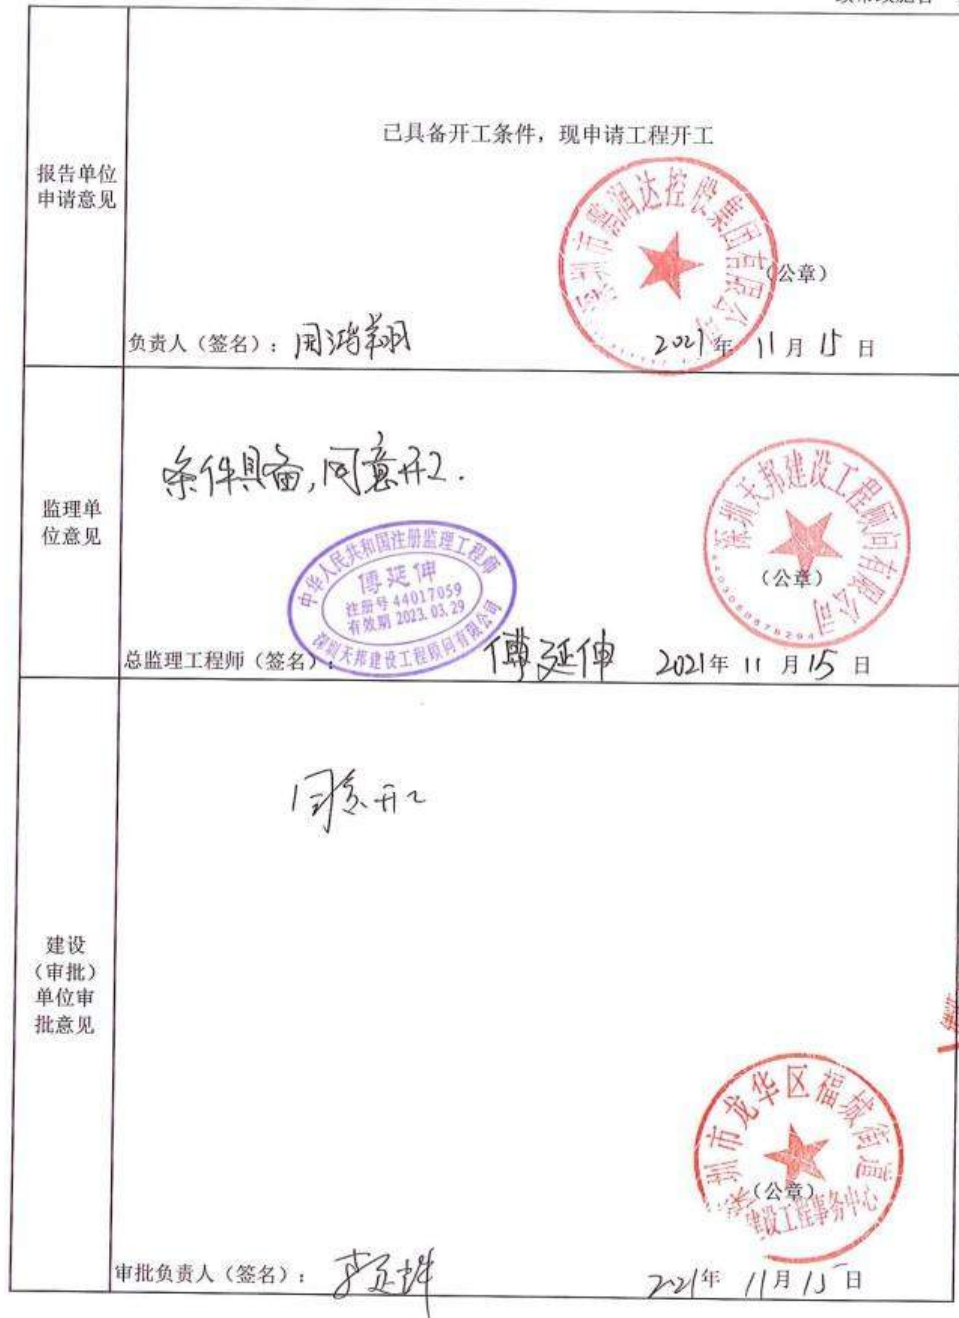 报告单位
申请意见
已具备开工条件，现申请工程开工
深圳市鹏润达控股集团有限公司
（公章）
负责人（签名）：周鸿翔
2021年 11月 15日
监理单
位意见
条件具备,同意开工.
深圳天邦建设工程顾问有限公司
（公章）
中华人民共和国注册监理工程师
傅延伸
注册号 44017059
有效期 2023.03.29
深圳天邦建设工程顾问有限公司
总监理工程师（签名）： 傅延伸 2021年 11月 15日
建设
（审批）
单位审
批意见
同意开工
深圳市龙华区福城街道
建设工程事务中心
（公章）
审批负责人（签名）：
2021年 11月 15日